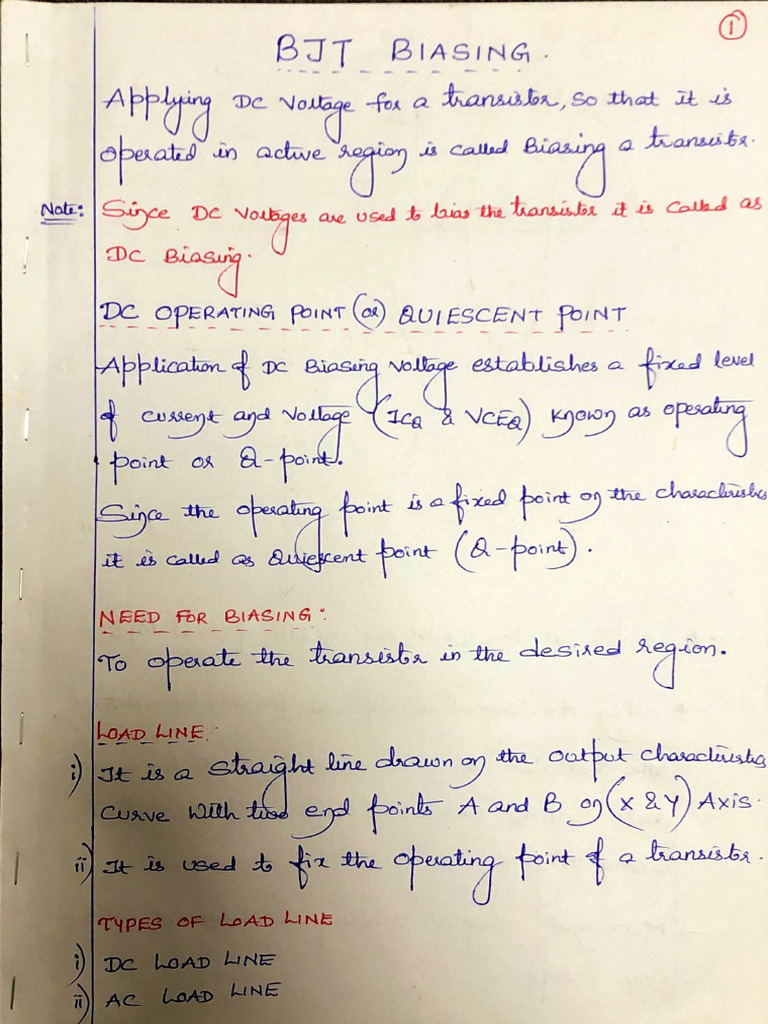 1
BJT BIASING.
Applying DC Voltage for a transistor, so that it is
operated in active region is called Biasing a transistor.
Note: Since DC Voltages are used to bias the transistor it is called as
DC Biasing.
DC OPERATING POINT (or) QUIESCENT POINT
Application of DC Biasing Voltage establishes a fixed level
of current and voltage (ICQ & VCEQ) known as operating
point or Q-point.
Since the operating point is a fixed point on the characteristics
it is called as Quiescent point (Q-point).
NEED FOR BIASING:
To operate the transistor in the desired region.
LOAD LINE
i) It is a straight line drawn on the output characteristics
curve with two end points A and B on (X & Y) Axis.
ii) It is used to fix the operating point of a transistor.
TYPES OF LOAD LINE
i) DC LOAD LINE
ii) AC LOAD LINE